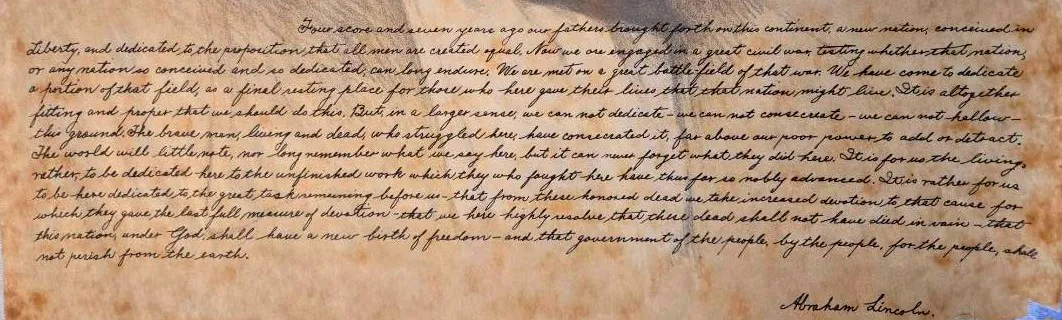 Four score and seven years ago our fathers brought forth on this continent, a new nation, conceived in
Liberty, and dedicated to the proposition that all men are created equal. Now we are engaged in a great civil war, testing whether that nation,
or any nation so conceived and so dedicated, can long endure. We are met on a great battle-field of that war. We have come to dedicate
a portion of that field, as a final resting place for those who here gave their lives that that nation might live. It is altogether
fitting and proper that we should do this. But, in a larger sense, we can not dedicate - we can not consecrate - we can not hallow -
this ground. The brave men, living and dead, who struggled here, have consecrated it, far above our poor power to add or detract.
The world will little note, nor long remember what we say here, but it can never forget what they did here. It is for us the living,
rather, to be dedicated here to the unfinished work which they who fought here have thus far so nobly advanced. It is rather for us
to be here dedicated to the great task remaining before us - that from these honored dead we take increased devotion to that cause for
which they gave the last full measure of devotion - that we here highly resolve that these dead shall not have died in vain - that
this nation, under God, shall have a new birth of freedom - and that government of the people, by the people, for the people, shall
not perish from the earth.
Abraham Lincoln.